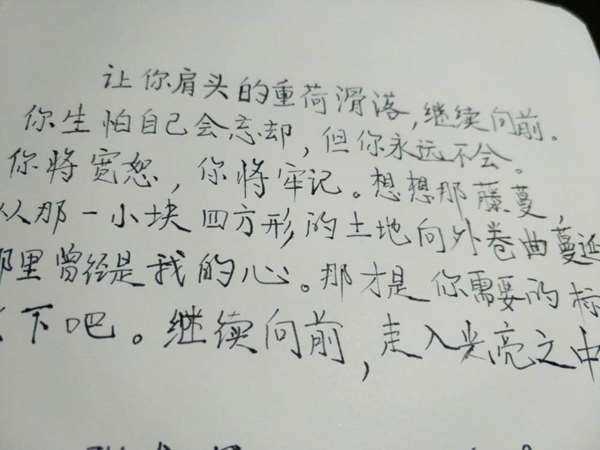 让你肩头的重荷滑落,继续向前.
你生怕自己会忘却,但你永远不会。
你将宽恕,你将牢记。想想那藤蔓,
从那一小块四方形的土地向外卷曲蔓延
那里曾经是我的心。那才是你需要的标
下吧。继续向前,走入光亮之中